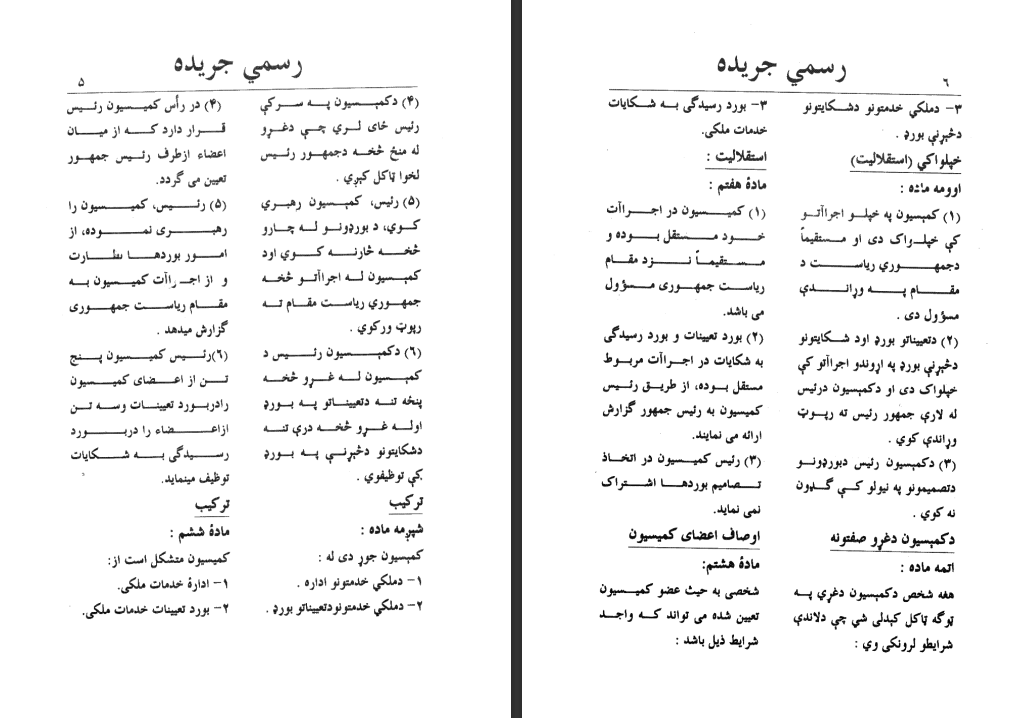 رسمي جريده
۵
(۴) دکمېسيون په سر کې
رئيس ځای لري چې دغړو
له منځ څخه دجمهور رئيس
لخوا ټاکل کېږي .
(۵) رئيس، کمېسيون رهبري
کوي، د بورډونو له چارو
څخه څارنه کوي اود
کمېسيون له اجراآتو څخه
جمهوري رياست مقام ته
رپوټ ورکوي .
(۶) دکمېسيون رئيس د
کمېسيون له غړو څخه
پنځه تنه دتعييناتو په بورډ
اوله غړو څخه درې تنه
دشکايتونو دڅېړنې په بورډ
کې توظيفوي .
ترکيب
شپږمه ماده :
کمېسيون جوړ دی له :
۱- دملکي خدمتونو اداره .
۲- دملکي خدمتونودتعييناتو بورډ .
(۴) در رأس کميسيون رئيس
قرار دارد که از ميان
اعضاء ازطرف رئيس جمهور
تعيين می گردد.
(۵) رئيس، کميسيون را
رهبری نموده، از
امور بوردها نظارت
و از اجراآت کميسيون به
مقام رياست جمهوری
گزارش ميدهد .
(۶)رئيس کميسيون پنج
تن از اعضای کميسيون
رادربورد تعيينات وسه تن
ازاعضاء را دربورد
رسيدگی به شکايات
توظيف مينمايد.
ترکيب
مادۀ ششم :
کميسيون متشکل است از:
۱- ادارۀ خدمات ملکی.
۲- بورد تعيينات خدمات ملکی.
رسمي جريده
۶
۳- دملکي خدمتونو دشکايتونو
دڅېړنې بورډ .
خپلواکي (استقلاليت)
اوومه ماده :
(۱) کمېسيون په خپلو اجراآتو
کې خپلواک دی او مستقيماً
دجمهوري رياست د
مقام په وړاندې
مسؤول دی .
(۲) دتعييناتو بورډ اود شکايتونو
دڅېړنې بورډ په اړوندو اجراآتو کې
خپلواک دی او دکمېسيون درئيس
له لارې جمهور رئيس ته رپوټ
وړاندې کوي .
(۳) دکمېسيون رئيس دبورډونو
دتصميمونو په نيولو کې گډون
نه کوي .
دکمېسيون دغړو صفتونه
اتمه ماده :
هغه شخص دکمېسيون دغړي په
ټوگه ټاکل کېدلی شي چې دلاندې
شرايطو لرونکی وي :
۳- بورد رسيدگی به شکايات
خدمات ملکی.
استقلاليت :
مادۀ هفتم :
(۱) کميسيون در اجراآت
خود مستقل بوده و
مستقيماً نزد مقام
رياست جمهوری مسؤول
می باشد.
(۲) بورد تعيينات و بورد رسيدگی
به شکايات در اجراآت مربوط
مستقل بوده، از طريق رئيس
کميسيون به رئيس جمهور گزارش
ارائه می نمايند.
(۳) رئيس کميسيون در اتخاذ
تصاميم بوردها اشتراک
نمی نمايد.
اوصاف اعضای کميسيون
مادۀ هشتم:
شخصی به حيث عضو کميسيون
تعيين شده می تواند که واجد
شرايط ذيل باشد :